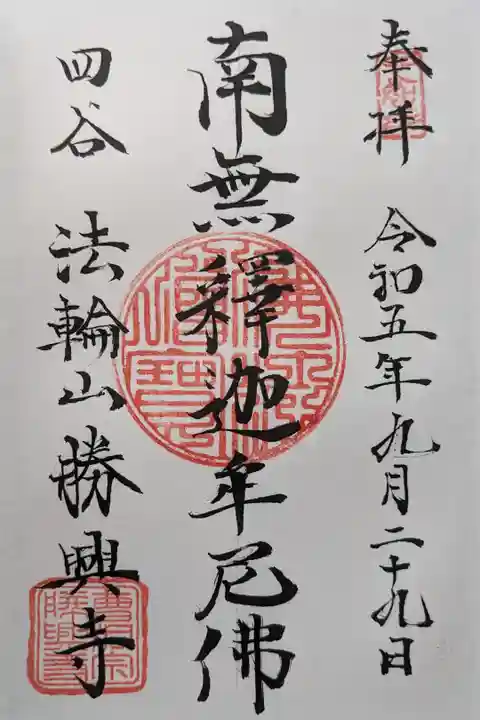 奉拝 令和五年九月二十九日
南無釋迦牟尼佛
四谷 法輪山勝興寺